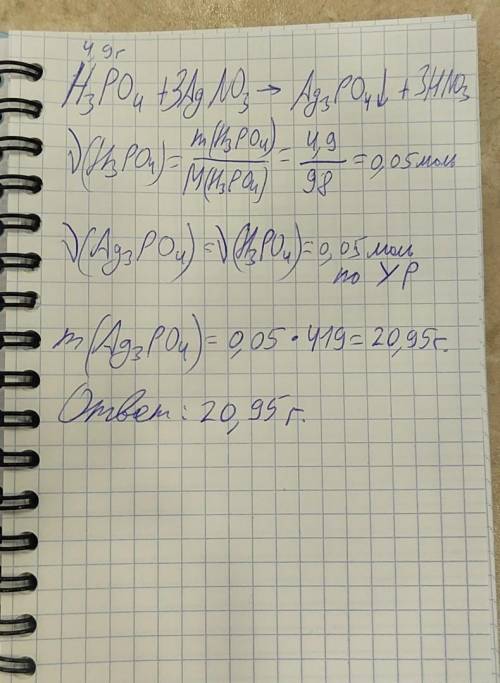 4,9г
H₃PO₄ + 3AgNO₃ → Ag₃PO₄↓ + 3HNO₃
ν(H₃PO₄) = m(H₃PO₄)/M(H₃PO₄) = 4,9/98 = 0,05 моль
ν(Ag₃PO₄) = ν(H₃PO₄) = 0,05 моль
по УР
m(Ag₃PO₄) = 0,05 · 419 = 20,95 г.
Ответ: 20,95 г.